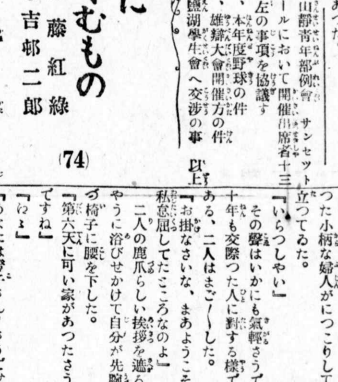 山靜青年部例會 サンセット
ールにおいて開催出席者十三
左の事項を協議す
、本年度野球の件
、雄辯大會開催方の件
鹽湖學生會へ交渉の事 以上
に
むもの
藤紅綠
吉邨二郎
(74)
つた小柄な婦人がにつこりして
立つてゐた。
『いらつしやい』
その聲はいかにも氣輕さうで
十年も交際つた人に對する樣で
ある、二人はまご〱した。
『お掛なさいな、まあようこそ
私怠屈してたところなのよ』
二人の鹿爪らしい挨拶を遮る
やうに浴びせかけて自分が先晥
椅子に腰を下した。
『第六天に可い家があつたさう
ですね』
『ねえ』